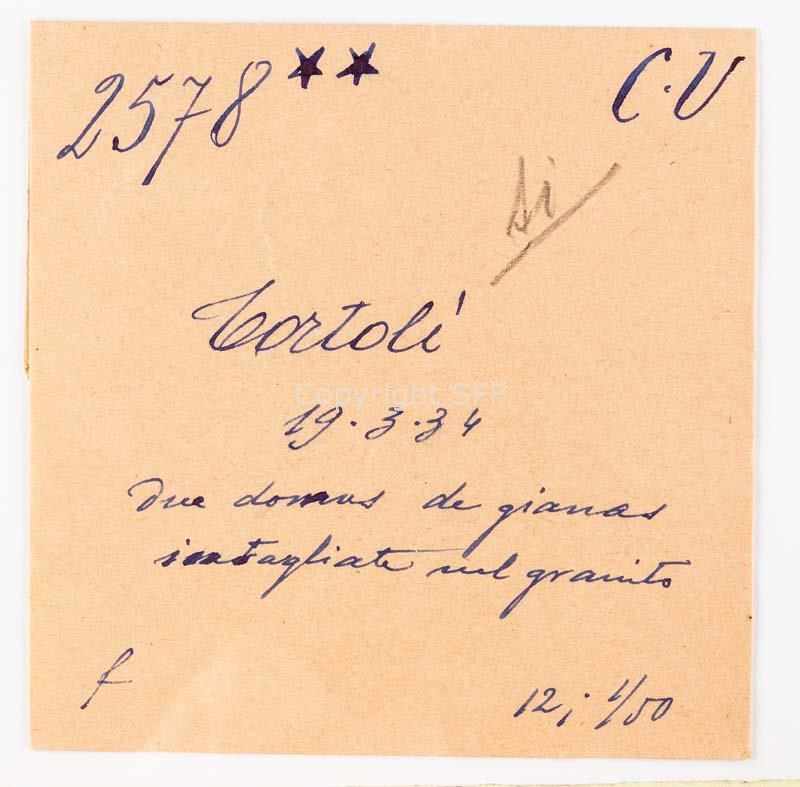 2578 ★★ C.V
si
Tortolí
Copyright SFF
19.3.34
Due domus de gianas
intagliate nel granito
f 12; 1/50